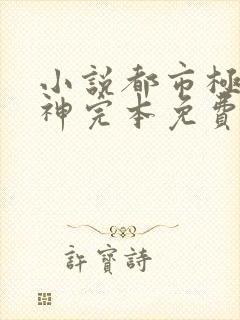 小説都市極
神完本免費
許寳詩